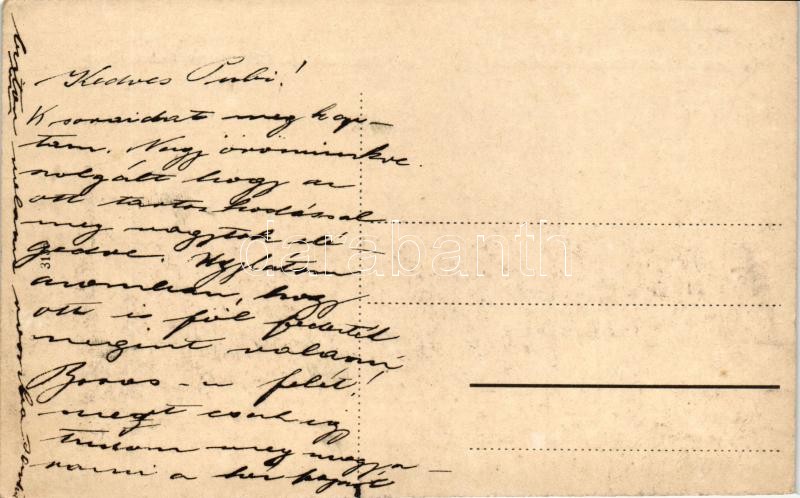 Kedves Pubi!
K soraidat meg kap-
tam. Nagy örömünkre
szolgált hogy az
ott tartózkodással
meg vagytok elé-
gedve. Úgy látom
azonban, hogy
ott is föl fedeztél
megint valami
Boros-u felét,
mert csak így
tudom meg magya-
rázni a
darabanth
31